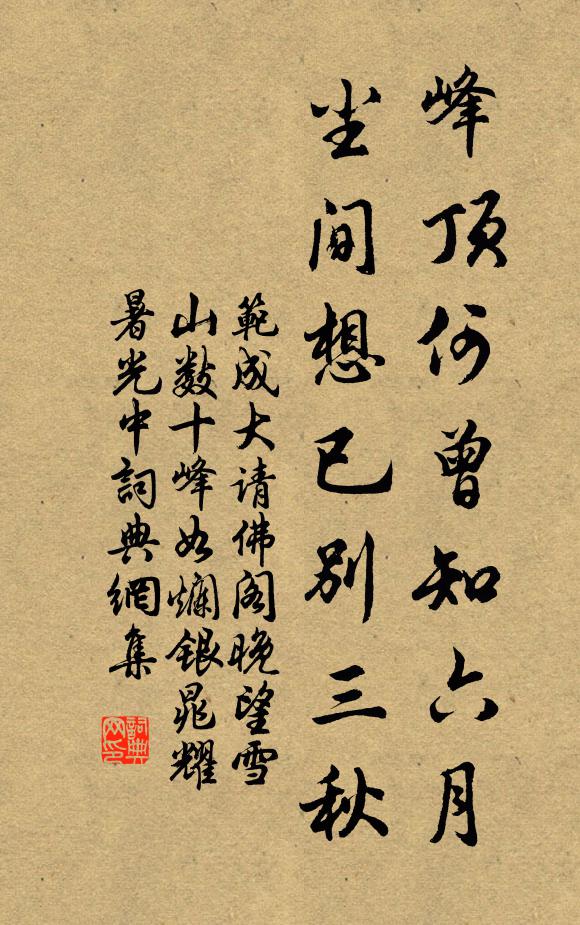 峰顶何曾知六月
尘间想已别三秋
範成大请佛阁晚望雪
山数十峰如爛银晃耀
暑光中詞典網集
詞典
网印